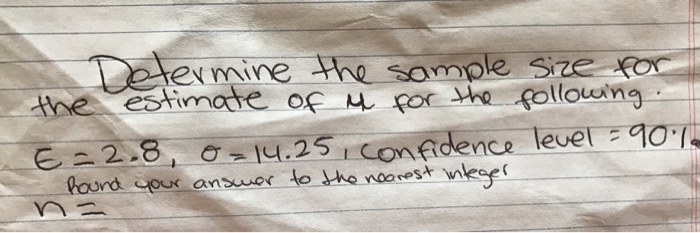 Determine the sample size for
the estimate of μ for the following.
E = 2.8, σ = 14.25, confidence level = 90%
Round your answer to the nearest integer
n =